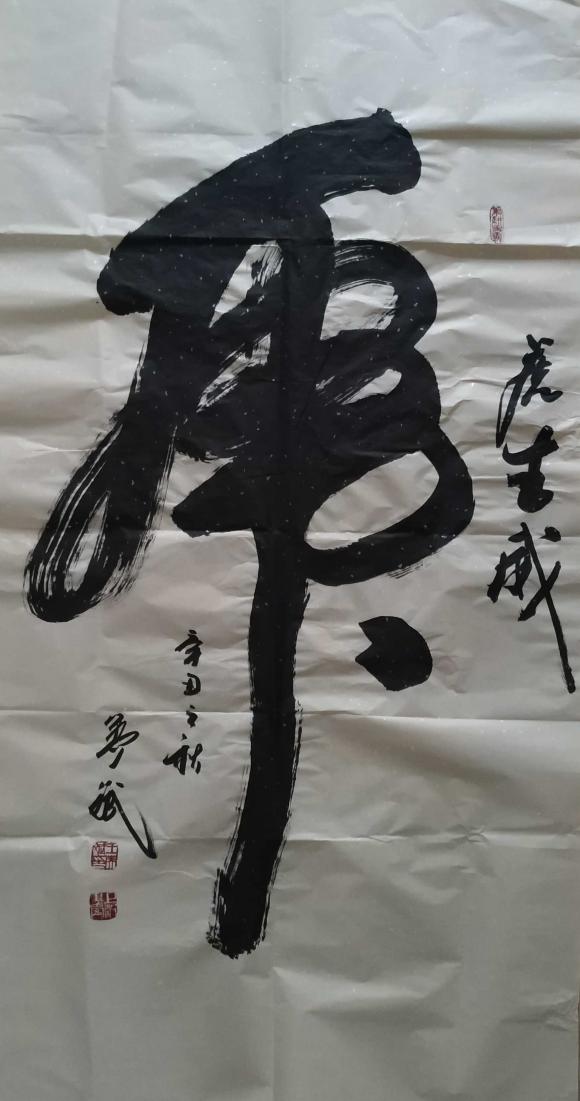 虎
虎生威
辛丑之秋